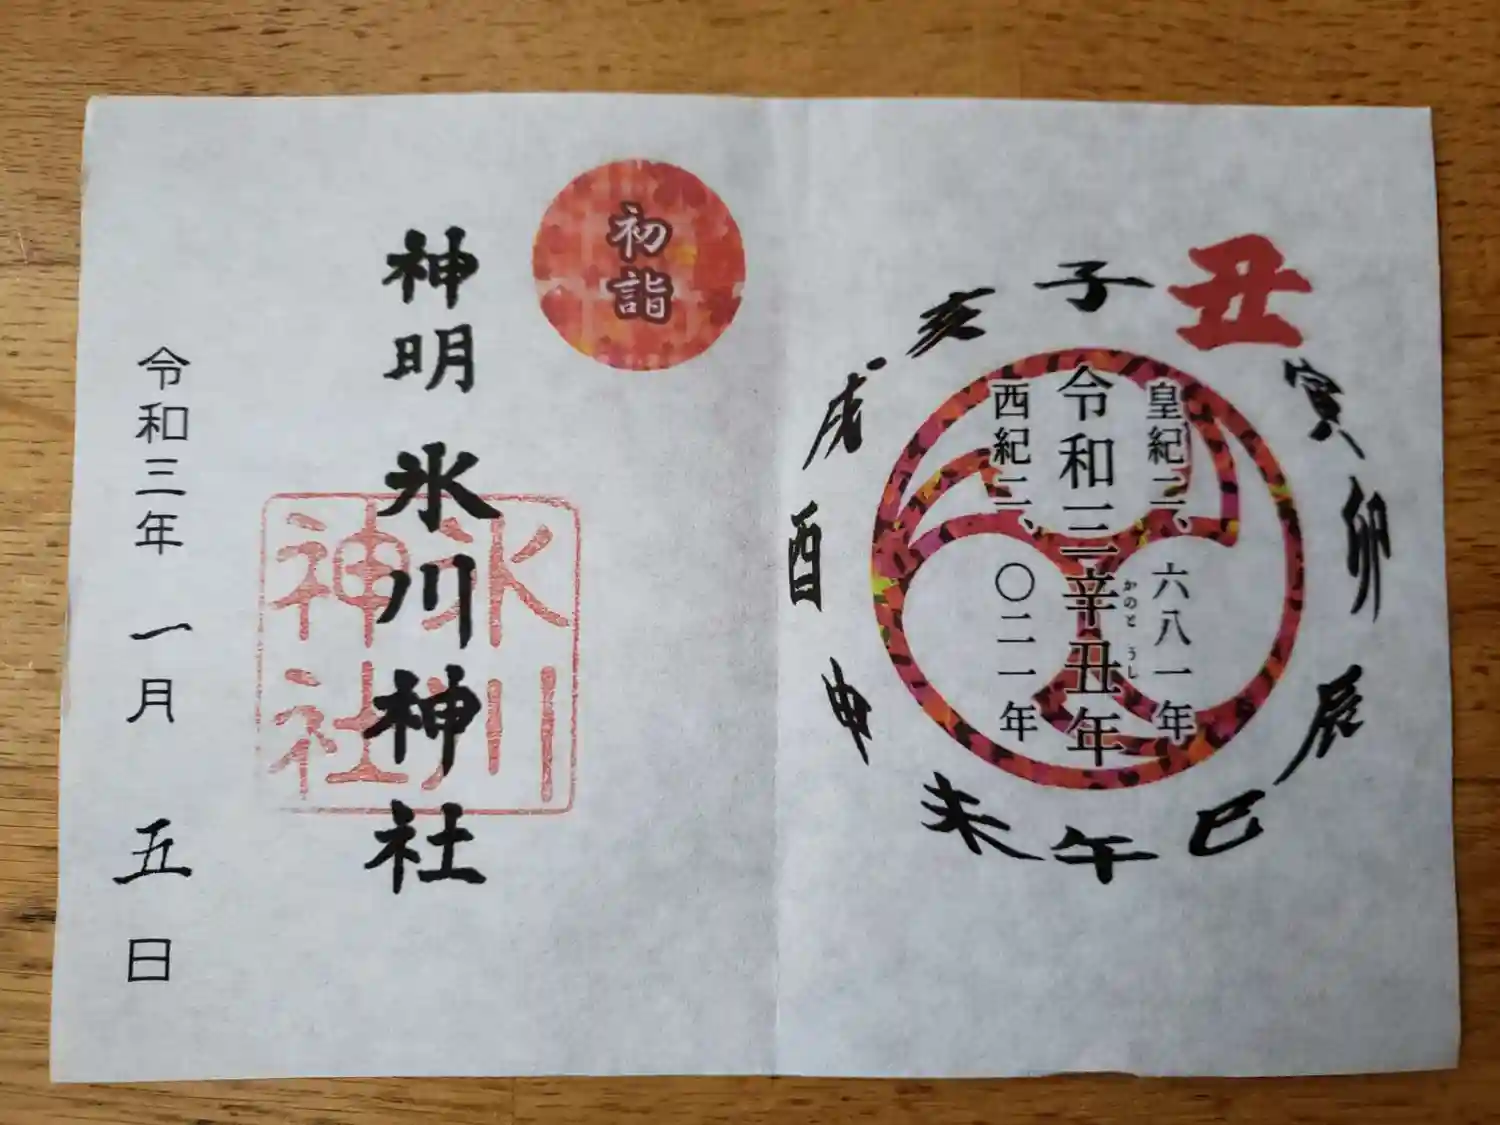 丑
寅
卯
辰
巳
午
未
申
酉
戌
亥
子
皇紀二、六八一年
令和三辛丑年
かのと うし
西紀二、〇二一年
初詣
神明氷川神社
氷川
神社
令和三年 一月 五日